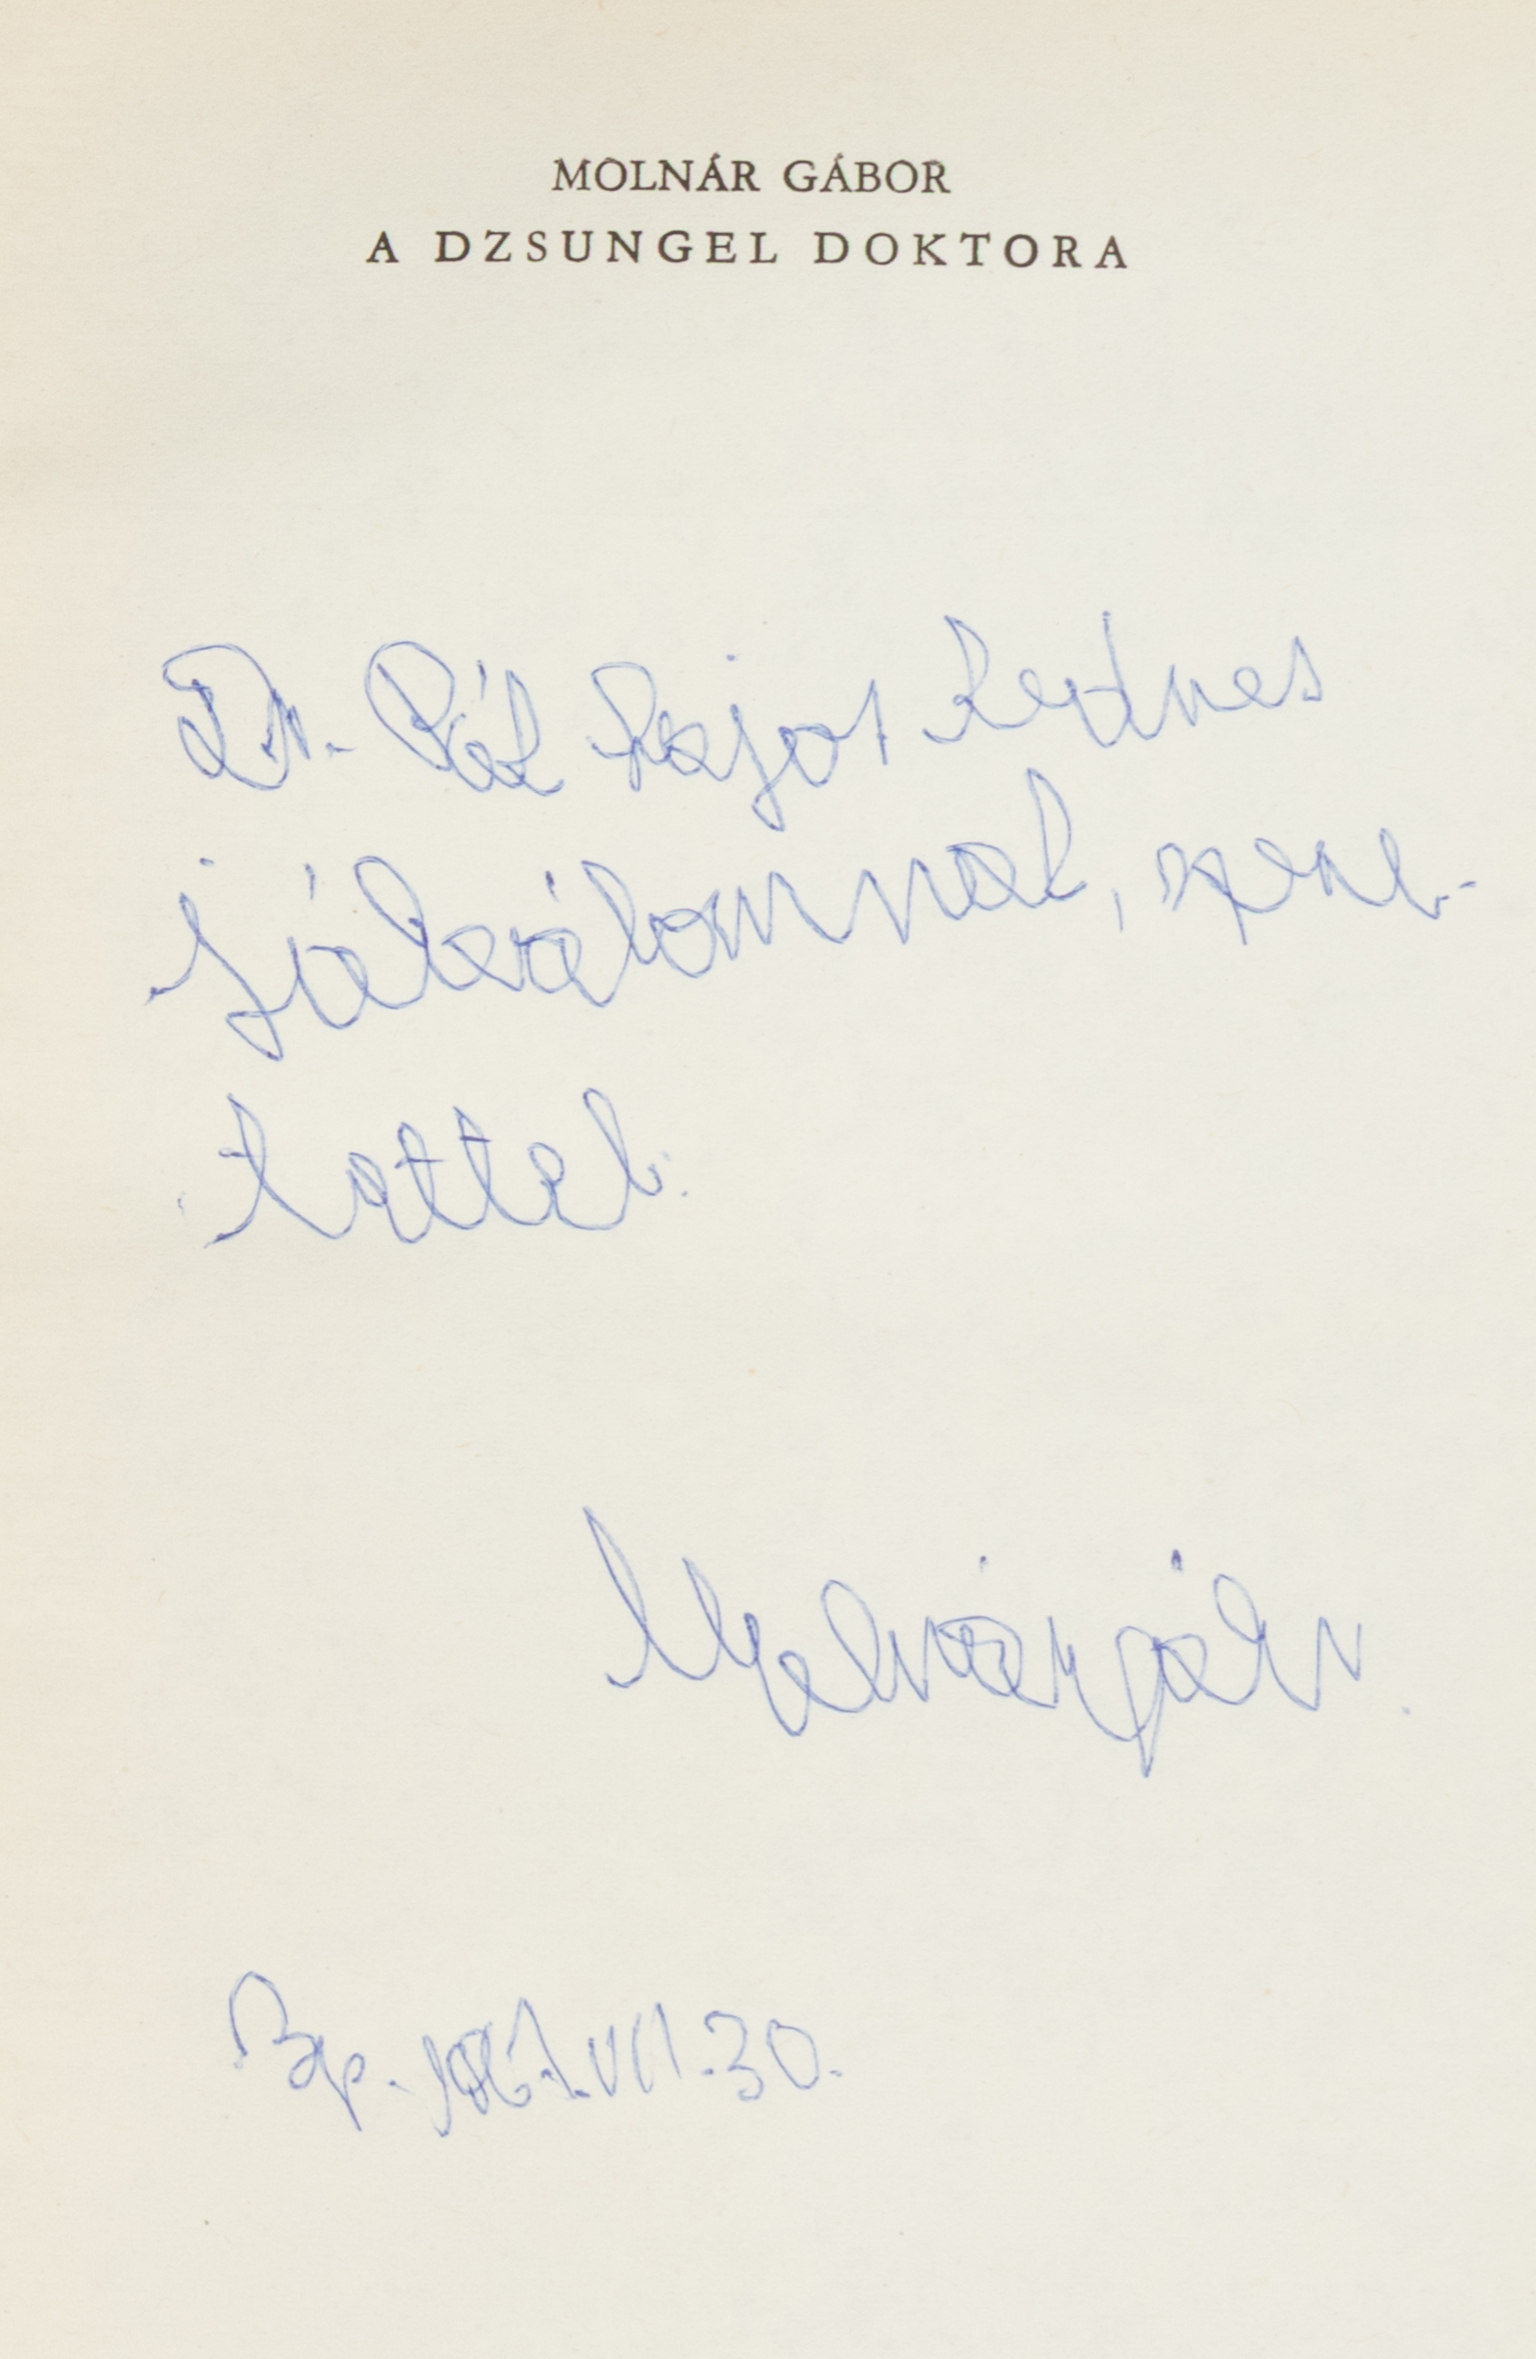 MOLNÁR GÁBOR
A DZSUNGEL DOKTORA
Dr. Pál Lajos kedves
jóbarátomnak, szere-
tettel.
Molnár Gábor
Bp. 1967. VII. 30.